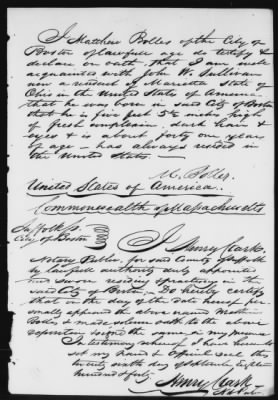 I Matthew Bolles of the City of
Boston of lawful age do testify &
declare on oath, that I am well
acquainted with John W. Sullivan
now a resident in Marietta State of
Ohio in the United States of America
that he was born in said City of Boston
that he is five feet 5½ inches height
of fresh complexion, dark hair &
eyes & is about forty one years
of age – has always resided in
the United States –
M. Bolles.
United States of America.
Commonwealth of Massachusetts
Suffolk ss.
City of Boston
I Henry Clark
Notary Public, for said County of Suffolk
by lawful authority duly appointed
and sworn, residing & practising in the
said City of Boston, Do hereby certify
that on the day of the date hereof
personally appeared the above named Matthew
Bolles & made solemn oath to the above
deposition before me
In testimony whereof I have hereunto
set my hand & official seal this
twenty sixth day of eighteen
hundred & fifty.
Henry Clark